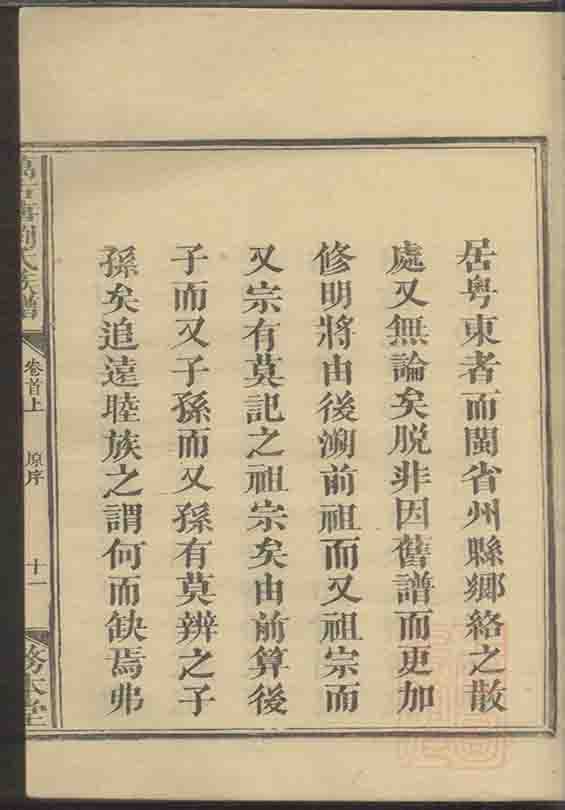 居粵東者而閩省州縣鄉絡之散
處又無論矣脫非因舊譜而更加
修明將由後溯前祖而又祖宗而
又宗有莫記之祖宗矣由前算後
子而又子孫而又孫有莫辨之子
孫矣追遠睦族之謂何而缺焉弗
劉氏族譜
卷首上
原序
十一
務本堂